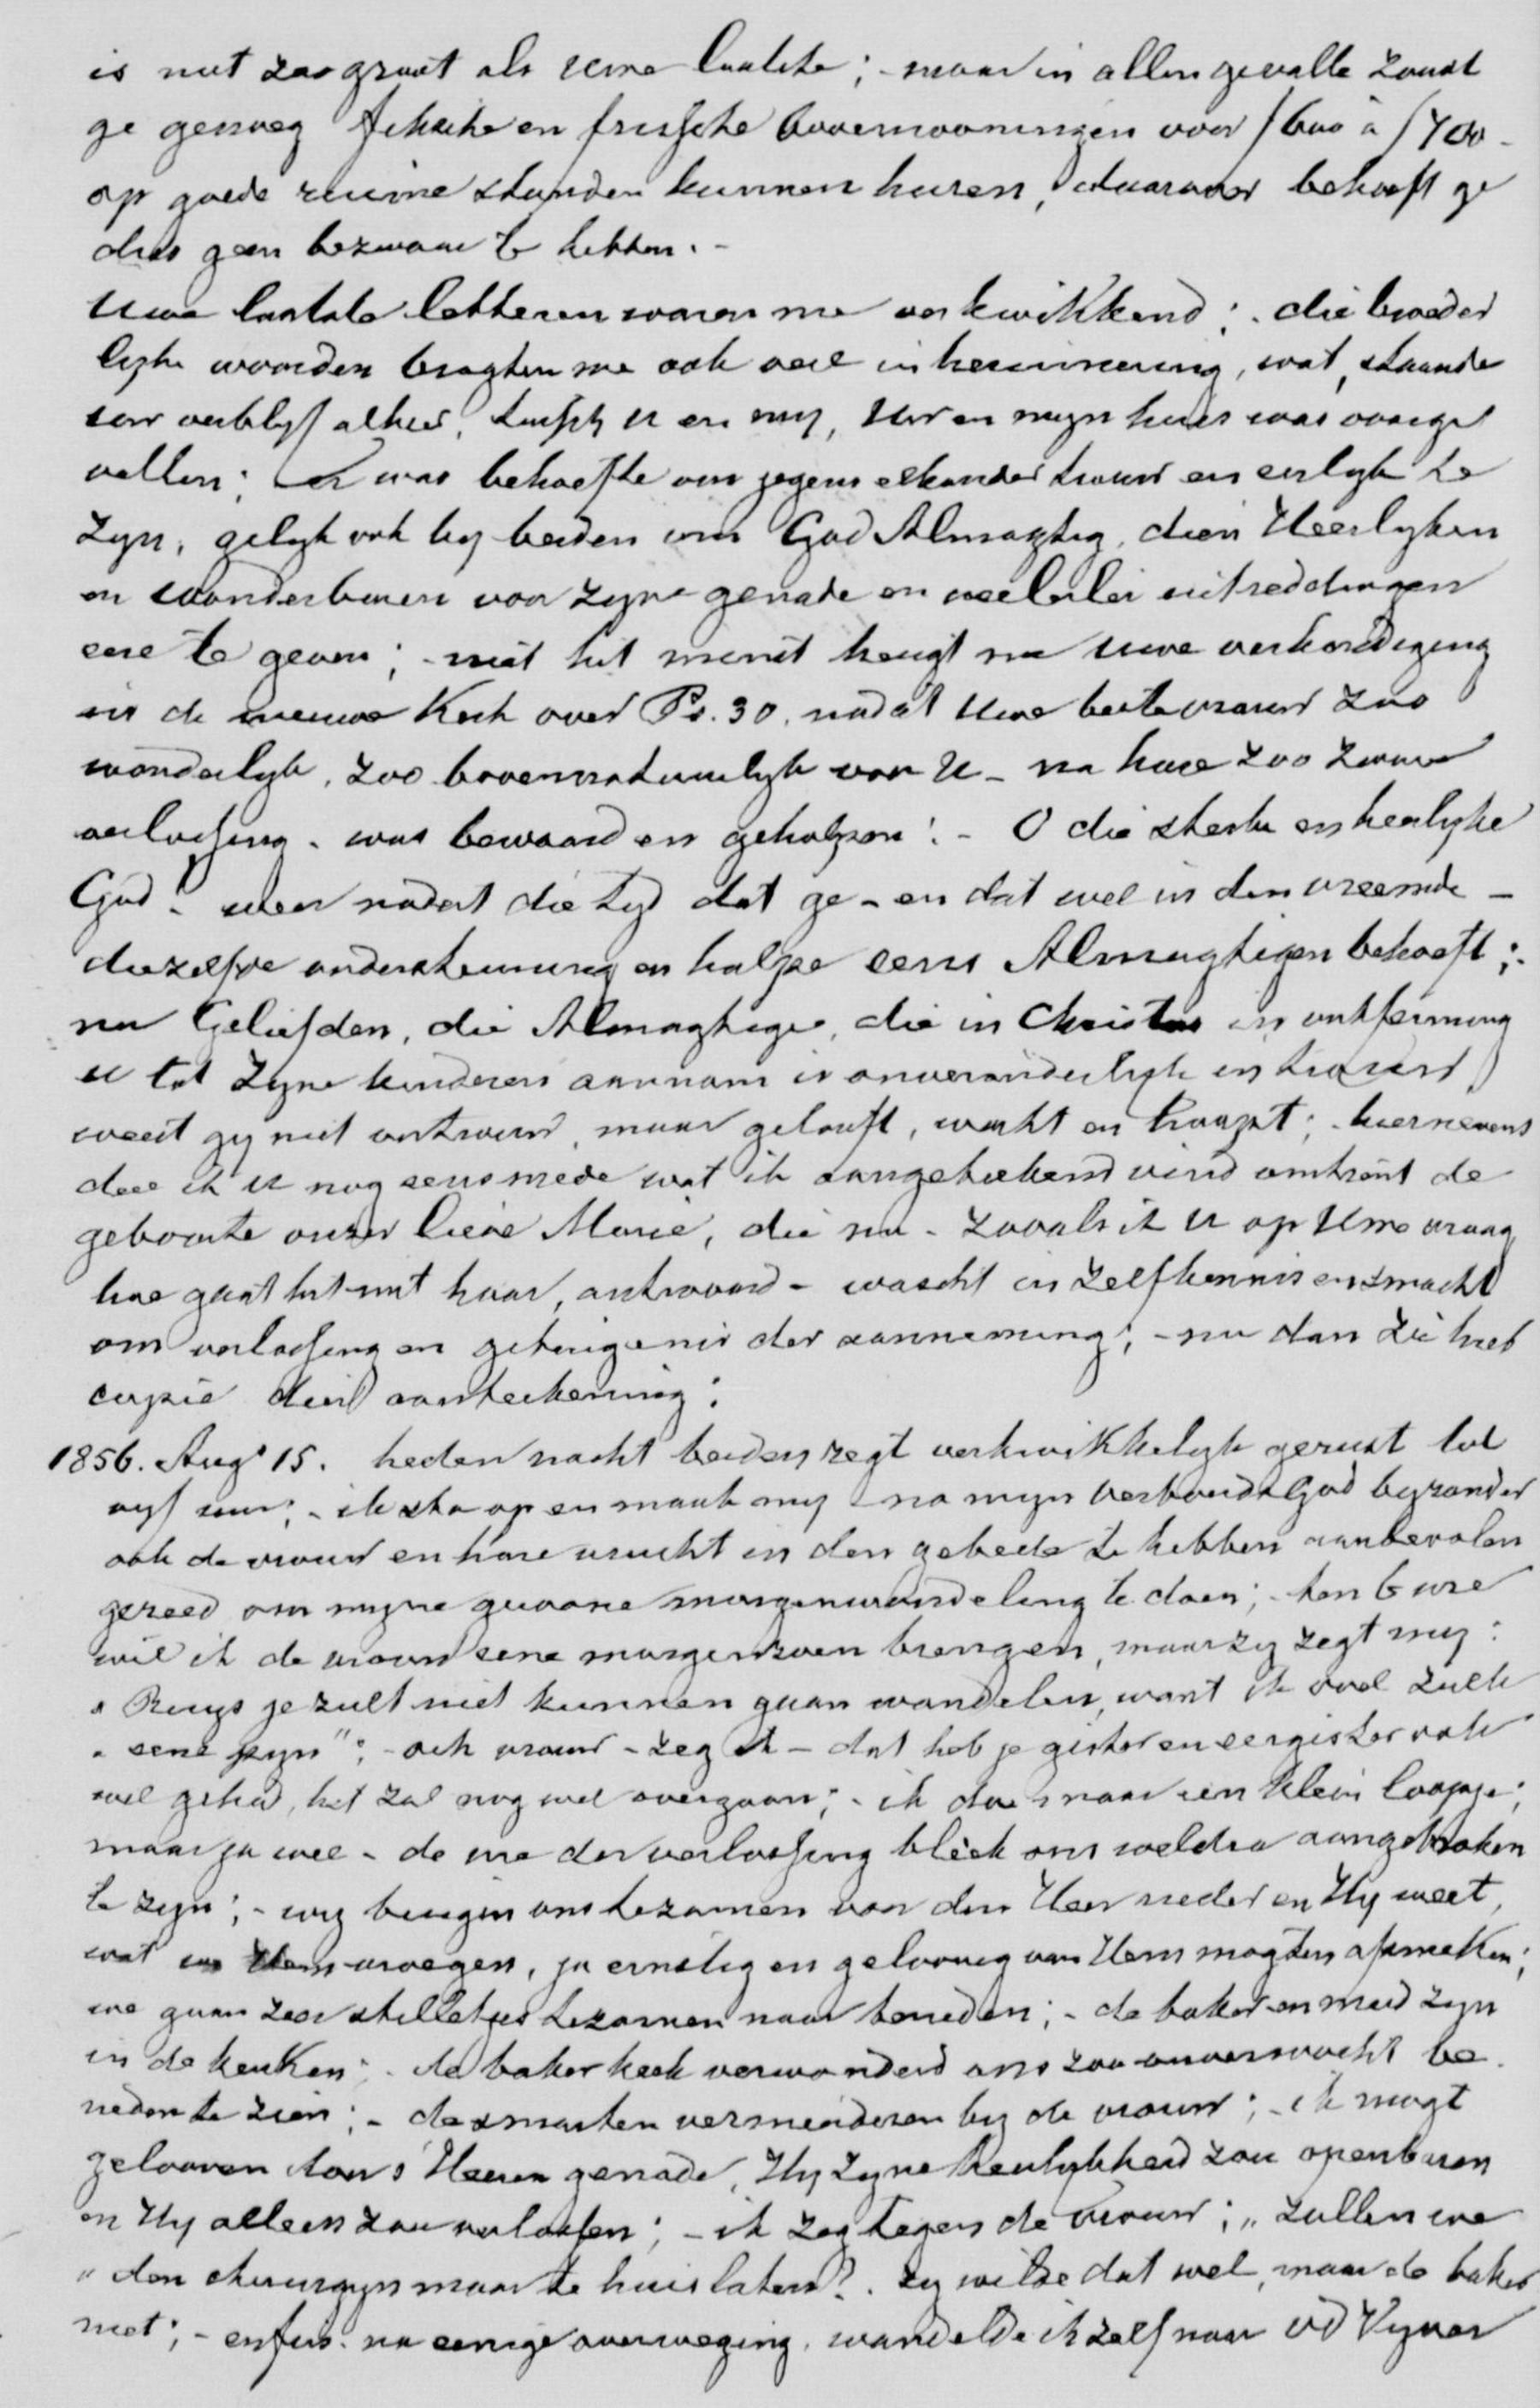 is niet zoo groot als Uwe laatste; - maar in allen gevalle zoudt
ge genoeg en frissche bovenwooningen voor ƒ600 à ƒ700 -
op goede ruime standen kunnen huren, daarvoor behoeft ge
dus geen bezwaar te hebben. -
Uwe laatste letteren waren me verkwikkend; - die broeder
lyke woorden bragten me ook veel in herinnering, wat, staande
uw verblyf alhier, tussch U en my, Uw en myn huis was voorge
vallen; Er was behoefte om jegens elkander trouw en eerlyk te
zyn, gelyk ook by beiden om God Almagtig, dien Heerlyken
en wonderbaren voor Zyne genade en veelerlei uitreddingen
eere te geven; - niet het minst heugt me Uwe verkondiging
in de nieuwe Kerk over Ps. 30. nadat Uwe beste vrouw zoo
wonderlyk, zoo bovennatuurlyk voor U - na hare zoo zware
verlossing - was bewaard en geholpen! - O die sterke en heerlyke
God! weer nadert die tyd dat ge - en dat wel in den vreemde -
diezelfde ondersteuning en hulpe eens Almagtigen behoeft; -
nu Geliefden, die Almagtige, die in Christus in ontferming
U tot Zyne kinderen aannam is onveranderlyk en trouw
weest gy niet ontrouw, maar gelooft, wacht en hoopt; - hiernevens
deel ik U nog eens mede wat ik aangeteekend vind omtrent de
geboorte onzer lieve Marie, die nu - zooals ik U op Uwe vraag
hoe gaat het met haar, antwoord - wascht in zelfkennis en smacht
om verlossing en getuigenis der aanneming; - nu dan zie hier
copie dier aanteekening:
1856. Aug 15. heden nacht beiden regt verkwikkelyk gerust tot
vyf uur; - ik sta op en maak my na myn Verbonds God byzonder
ook de vrouw en hare vrucht in den gebede te hebben aanbevolen
gereed om myne gewone morgenwandeling te doen; - ten 6 ure
wil ik de vrouw eene morgenzoen brengen, maar zy zegt my:
" Ruys je zult niet kunnen gaan wandelen, want ik voel zulk
" eene pyn"; - och vrouw - zeg ik - dat heb je gister en eergister ook
wel gehad, het zal nog wel overgaan; - ik doe maar een klein loopje;
maar ja wel - de ure der verlossing bleek ons weldra aangebroken
te zyn; - wy buigen ons tezamen voor den Heer neder en Hy weet,
wat we Hem vroegen, ja ernstig en geloovig van Hem mogten afsmeken;
we gaan zeer stilletjes tezamen naar beneden; - de baker en meid zyn
in de keuken; - de baker keek verwonderd ons zoo onverwacht be
neden te zien; - de smarten verminderen by de vrouw; - ik mogt
gelooven door s' Heeren genade, Hy Zyne heerlykheid zou openbaren
en Hy alleen zou verlossen; - ik zeg tegen de vrouw; „ zullen we
" den chirurgyn maar te huis laten? - zy wilde dat wel, maar de baker
niet; - enfin - na eenige overweging, wandelde ik zelf naar vd Vyver